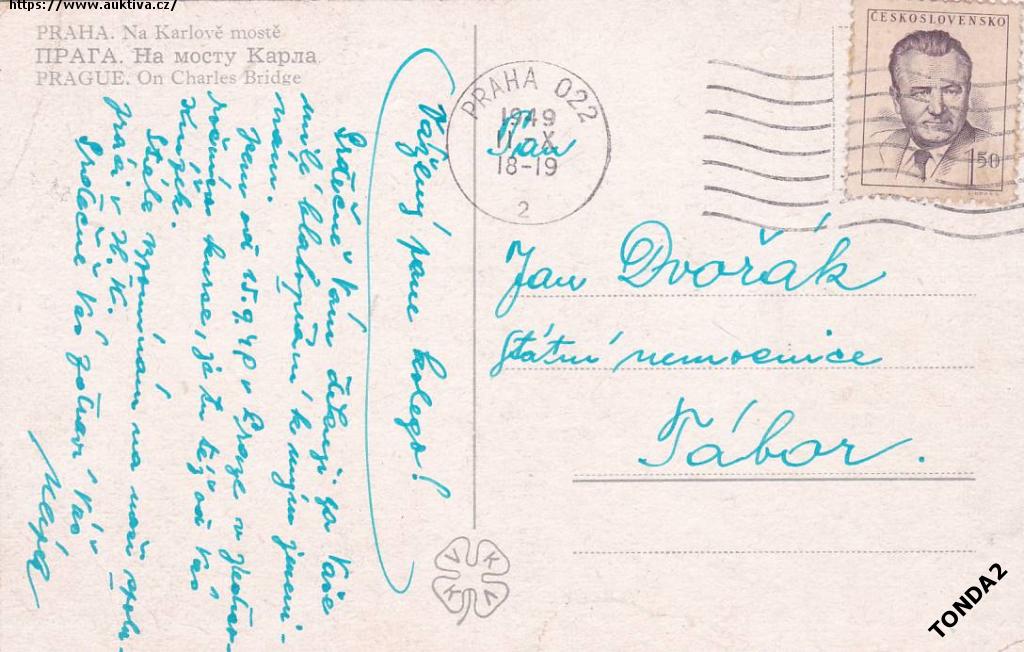 https://www.auktiva.cz/
PRAHA. Na Karlově mostě
ПРАГА. На мосту Карла
PRAGUE. On Charles Bridge
Vážený pane kolego!
Srdečně Vám děkuji za Vaše
milé blahopřání k mým jmeni-
nám.
Jsem od 15.9. v Praze v
ročním kurse, je tu též od Vás
Stále vzpomínám na naši spolu-
práci v H.K.!
Srdečně Vás zdraví Váš
PRAHA 022
1949
11. X
18-19
2
Pan
Jan Dvořák
státní nemocnice
Tábor.
ČESKOSLOVENSKO
1.50
V K V K
TONDA2